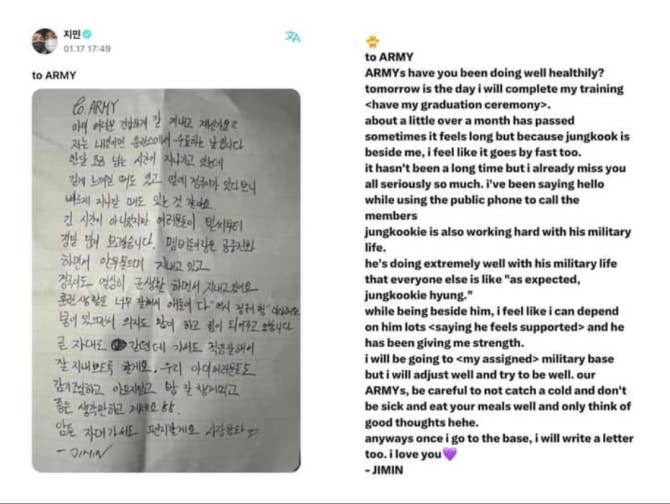 지민
01.17 17:49
to ARMY
to ARMY
아미 여러분 건강하게 잘 지내고 계신가요?
저는 내일이면 훈련소에서 수료하는 날입니다
한달 조금 넘는 시간이 지나가고 있는데
길게 느껴질 때도 있고 옆에 정국이가 있다보니
빠르게 지나간 때도 있는 것 같아요
긴 시간이 아니었지만 여러분들이 벌써부터
정말 많이 보고싶습니다. 멤버들이랑은 공중전화
하면서 안부 물으며 지내고 있고
정국이도 열심히 군생활 하면서 지내고 있어요
훈련 생활을 너무 잘해서 애들이 다 "역시 정국이 형"
붙어 있으면서 의지도 많이 하고 힘이 되어주고
곧 자대로 갈텐데 가서도 적응 잘해서
잘 지내보도록 할게요. 우리 아미 여러분들도
감기조심하고 아프지말고 밥 잘 챙겨먹고
좋은 생각만하고 계세요 ㅎㅎ
암튼 자대가서도 편지할게요
- JIMIN
to ARMY
ARMYs have you been doing well healthily?
tomorrow is the day i will complete my training
<have my graduation ceremony>.
about a little over a month has passed
sometimes it feels long but because jungkook is
beside me, i feel like it goes by fast too.
it hasn't been a long time but i already miss you
all seriously so much. i've been saying hello
while using the public phone to call the
members
jungkookie is also working hard with his military
life.
he's doing extremely well with his military life
that everyone else is like "as expected,
jungkookie hyung."
while being beside him, i feel like i can depend
on him lots <saying he feels supported> and he
has been giving me strength.
i will be going to <my assigned> military base
but i will adjust well and try to be well. our
ARMYs, be careful to not catch a cold and don't
be sick and eat your meals well and only think of
good thoughts hehe.
anyways once i go to the base, i will write a letter
too. i love you💜
- JIMIN